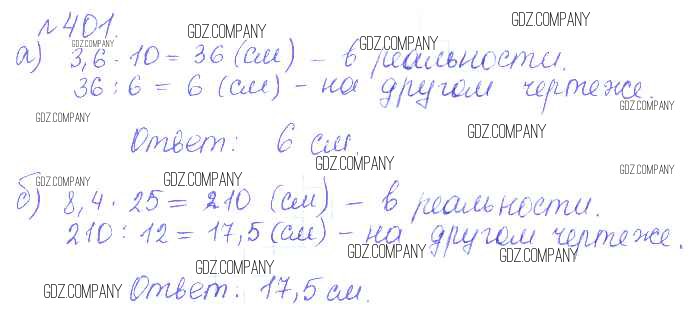 №401.
GDZ.COMPANY
GDZ.COMPANY
GDZ.COMPANY
GDZ.COMPANY
а) 3,6 · 10 = 36 (см) – в реальности.
36 : 6 = 6 (см) – на другом чертеже.
GDZ.COMPANY
GDZ.COMPANY
GDZ.COMPANY
Ответ: 6 см.
GDZ.COMPANY
GDZ.COMPANY
GDZ.COMPANY
GDZ.COMPANY
б) 8,4 · 25 = 210 (см) – в реальности.
210 : 12 = 17,5 (см) – на другом чертеже.
GDZ.COMPANY
GDZ.COMPANY
GDZ.COMPANY
GDZ.COMPANY
Ответ: 17,5 см.